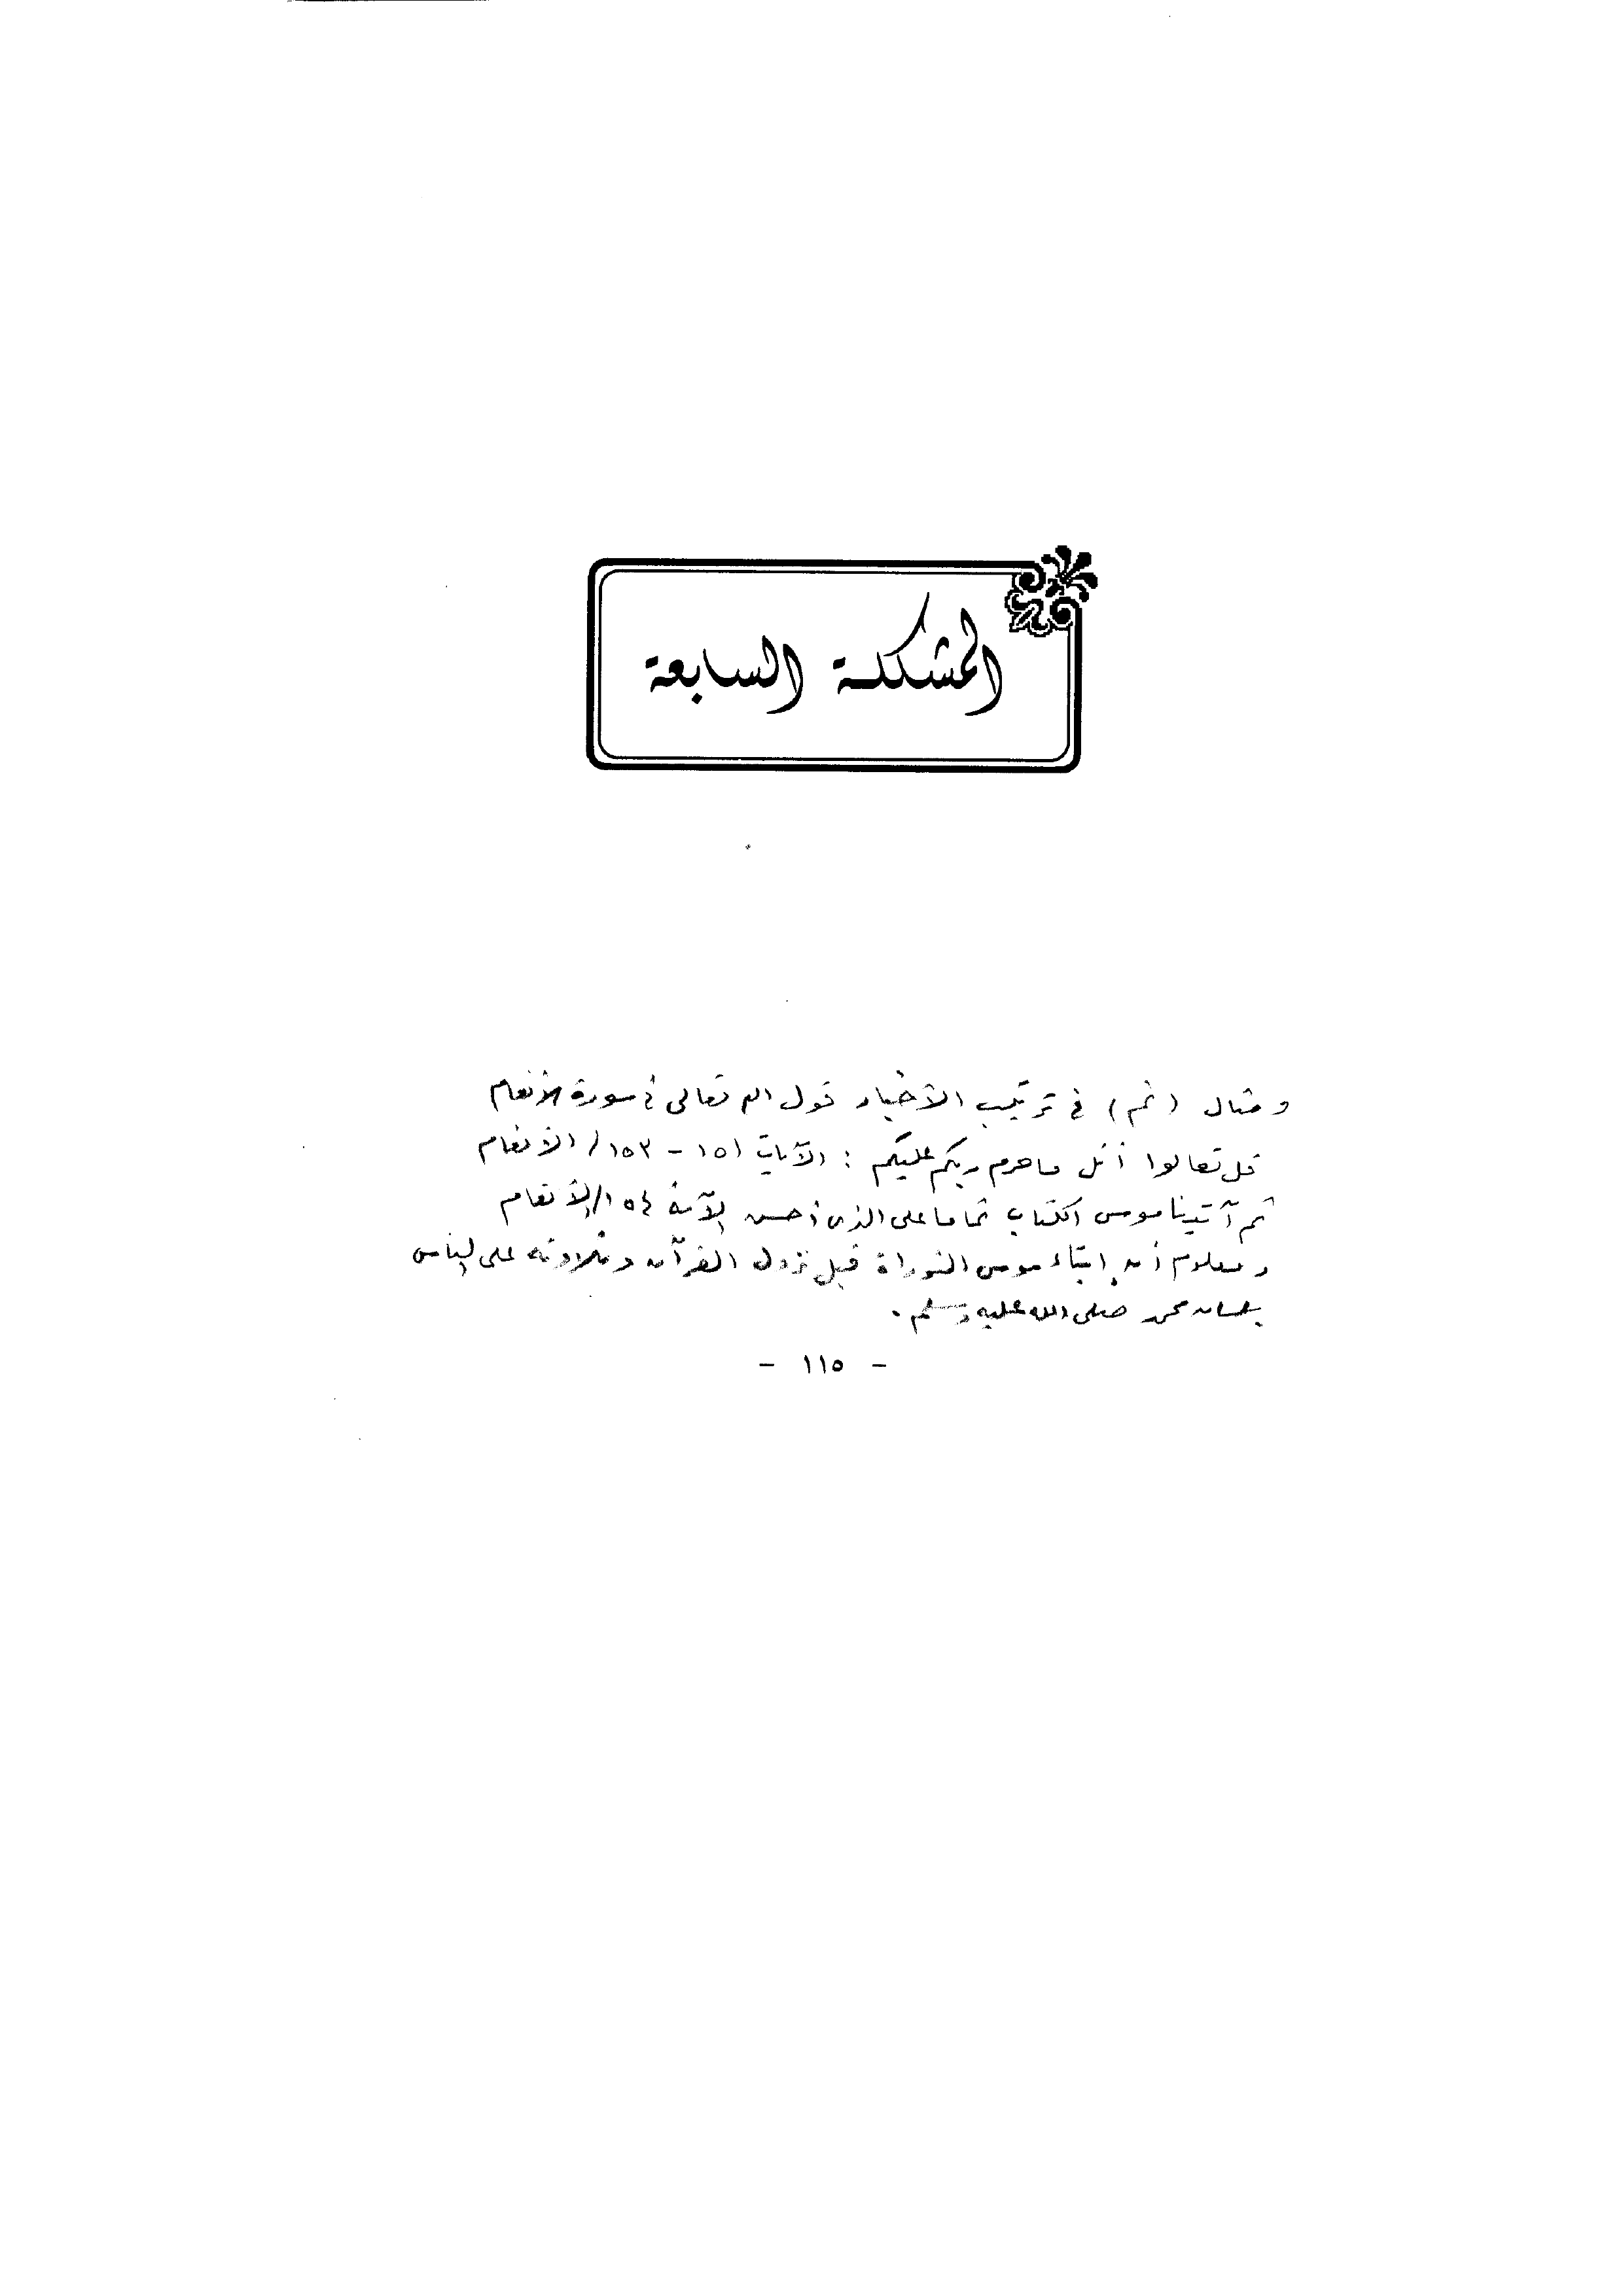 المشكلة السابعة
ومثال (ثم) في ترتيب الأخبار قول الله تعالى في سورة الأنعام
قل تعالوا أتل ما حرم ربكم عليكم : الآيات ١٥١ - ١٥٣ / الأنعام
ثم آتينا موسى الكتاب تماما على الذى أحسن الآية ١٥٤/الأنعام
ومعلوم أن إيتاء موسى التوراة قبل نزول القرآن وتلاوته على الناس
بلسان محمد صلى الله عليه وسلم .
- ١١٥ -